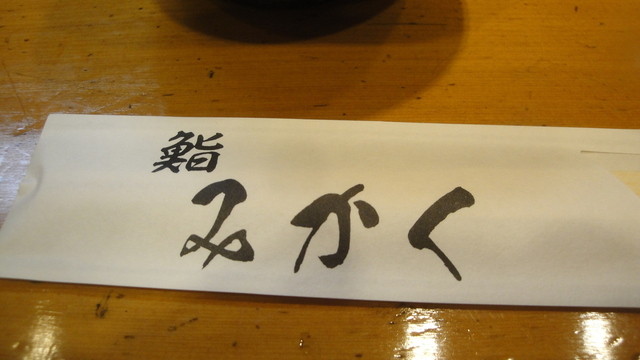 鮨
みかく